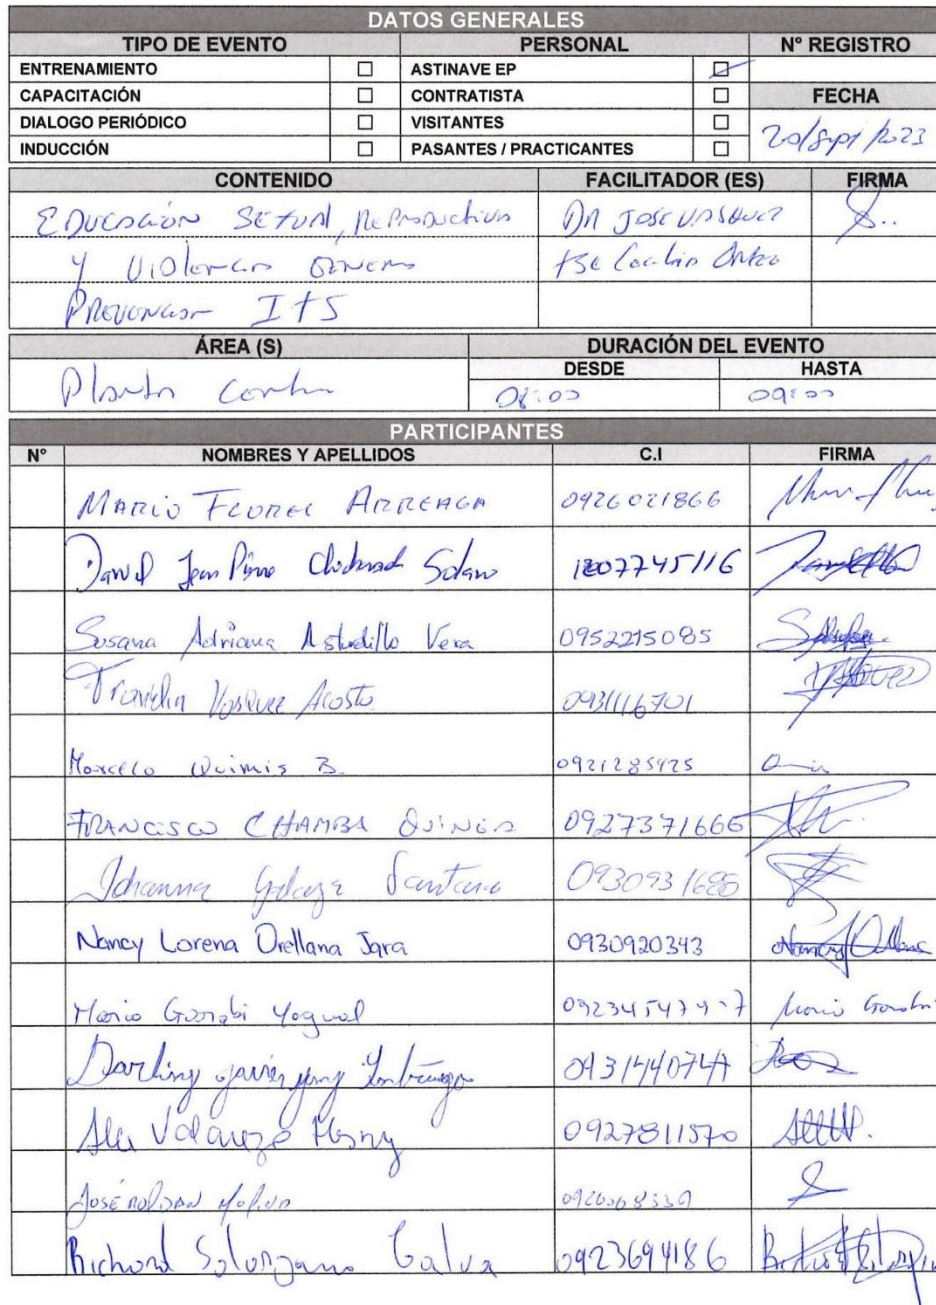 DATOS GENERALES
TIPO DE EVENTO PERSONAL N° REGISTRO
ENTRENAMIENTO ☐ ASTINAVE EP ☐
CAPACITACIÓN ☐ CONTRATISTA ☐ FECHA
DIALOGO PERIÓDICO ☐ VISITANTES ☐ 20/sept/2023
INDUCCIÓN ☐ PASANTES / PRACTICANTES ☐
CONTENIDO FACILITADOR (ES) FIRMA
EDUCACIÓN SEXUAL, REPRODUCTIVA DR JOSE VASQUEZ
Y VIOLENCIA GENERO
PREVENCION ITS
ÁREA (S) DURACIÓN DEL EVENTO
DESDE HASTA
Planta 08:00 09:00
PARTICIPANTES
N° NOMBRES Y APELLIDOS C.I FIRMA
MARIO FLORES ARREAGA 0926021866
Jean Solano 1207745116
Susana Adriana Astudillo Vera 0952215085
Franklin Vasquez Acosta 0931116701
Marcelo Quimis B. 0921285425
FRANCISCO CHAMBA 0927371666
Johanna Santana
Nancy Lorena Orellana Jara 0930920343 Nancy Orellana
Mario Yagual
Darling 0931440747
Alex Valarezo 0927811570
JOSÉ ROLDAN
Richard Solorzano 0923694186